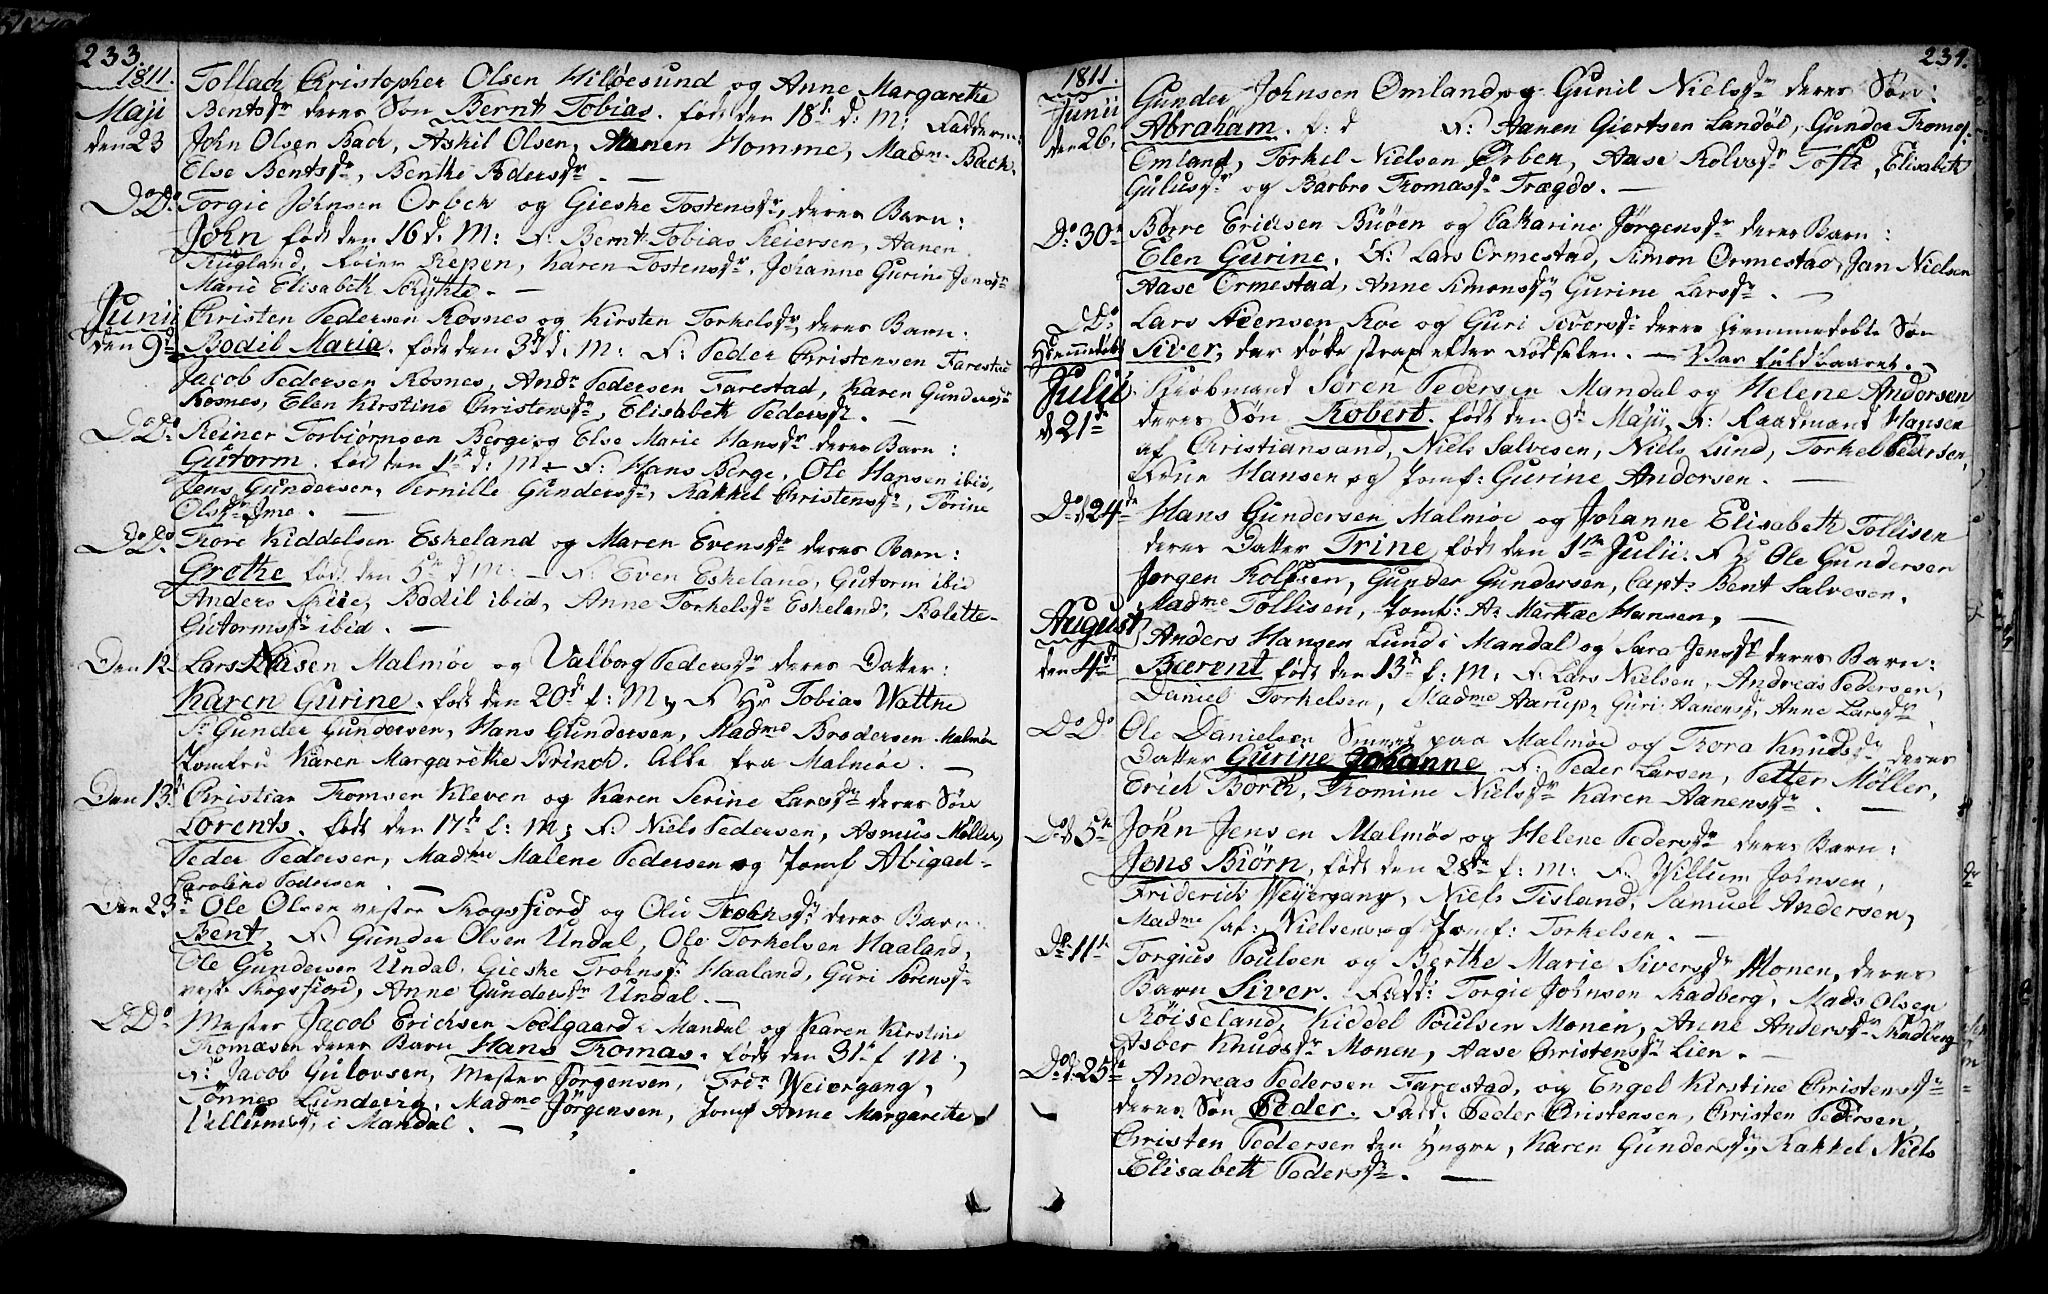 233.
1811.
Maji
den 23
Tollach Christopher Olsen Hilöesund og Anne Margarethe
Bentsdr deres Søn Bernt Tobias. født den 18d d: M: Faddere:
John Olsen Bach, Askil Olsen, Aanen Homme, Madme Bach.
Else Bentsdr, Benthe Pedersdr. —
Do Do Torgie Johnsen Orbek og Gieske Tostensdr, deres Barn:
John født den 16 d. M: F. Bernt Tobias Reiersen, Aanen
Rugland, Reier Repen, Karen Tostensdr, Johanne Gurine Jensdr
Marie Elisabeth . —
Junii
den 9de
Christen Pedersen Rosnes og Kirsten Torkelsdr, deres Barn.
Bodil Maria. født den 3d d: M: F: Peder Christensen Farestad
Jacob Pedersen Rosnes, Andr Pedersen Farestad, Karen Gundersdr
Rosnes, Elen Kirstine Christensdr, Elisabeth Pedersdr. —
Do Do Reiner Torbiørnsen Berge og Else Marie Hansdr deres Barn:
Gutorm. født den 1te d: M: F: Hans Berge, Ole Hansen ibid,
Jens Gundersen, Pernille Gundersdr, Rakkel Christensdr, Torine
Olsdr Ime. —
Do Do Tore Kiddelsen Eskeland og Maren Evensdr deres Barn:
Grethe født den 5te d M: — F: Even Eskeland, Gutorm ibid
Anders , Bodil ibid, Anne Torkelsdr Eskeland, Bolette
Gutormsdr ibid. —
Den 12 Lars Nilsen Malmøe og Valborg Pedersdr deres Datter:
Karen Gurine. født den 20de f: M; F Hr Tobias Wattne
Sr Gunder Gundersen, Hans Gundersen, Madme Brodersen Malmöe
Jomfru Karen Margarethe Brinch. Alle fra Malmøe. —
Den 13d Christian Tomsen Kleven og Karen Serine Larsdr deres Søn
Lorents. født den 17d f: M; F. Niels Pedersen, Asmus Møller,
Peder Pedersen, Madme Malene Pedersen og Jomf Abigael
Caroline Pedersen. —
Den 23d Ole Olsen vestre Skogsfiord og Oli dr deres Barn
Bent, F. Gunder Olsen Undal, Ole Torkelsen Haaland,
Ole Gundersen Undal, Gieske dr Haaland, Guri Sørensdr
vest: Skogsfiord, Anne Gundersdr Undal. —
Do Do Mester Jacob Erichsen Soelgaard i Mandal og Karen Kirstine
Tomæsen deres Barn Hans Tomas. født den 31te f M;
F. Jacob Gulovsen, Mester Jørgensen, Fridr Weiergang,
Tönnes Lundevig, Madme Jørgensen, Jomf Anne Margarethe
Villumsdr, i Mandal. —
234.
1811.
Junii
den 26.
Gunder Johnsen Omland og Gunil Nielsdr deres Søn:
Abraham. f: d F: Aanen Giertsen Landöe, Gunder Tomes.
Omland, Torkel Nielsen Orben, Aase Rolvsdr Tofte, Elisabeth
Gulusdr og Barbro Tomasdr Trægde. —
Do 30te Börre Erichsen Buöen og Catharine Jørgensdr deres Barn:
Elen Gurine. F: Lars Ormestad, Simon Ormestad, Jan Nielsen
Aase Ormestad, Anne Simonsdr, Gurine Larsdr. —
Do Do
Hiemmedøbt
Lars Adensen Roe og Guri Siversdr deres hiemmedøbte Søn
Siver, der døde strax efter Fødselen. — Var fuldbaaret. —
Julii
d 21de
Kiøbmand Søren Pedersen Mandal og Helene Andorsen
deres Søn Robert. født den 9de Maji, F. Raadmand Hansen
af Christiansand, Niels Salvesen, Niels Lund, Torkel Pedersen,
Frue Hansen og Jomf: Gurine Andorsen. —
Do d 24de Hans Gundersen Malmøe og Johanne Elisabeth Tollisen
deres Datter Trine født den 1te Julii. F. Hr Ole Gundersen
Jørgen Rolfsen, Gunder Gundersen, Capt: Bent Salvesen.
Madme Tollisen, Jomf: A: Marthæ Hansen, —
August
den 4de
Anders Hansen Lund i Mandal og Sara Jensdr deres Barn:
Bærent født den 13d f: M: F. Lars Nielsen, Andreas Pedersen,
Daniel Torkelsen, Madme Aarup, Guri Aanensdr, Anne Larsdr.
Do Do Ole Danielsen Smeed paa Malmøe og Tora Knudsdr deres
Datter Gurine Johanne F: Peder Larsen, Petter Möller,
Erich Borch, Tomine Nielsdr Karen Aanensdr. —
Do d 5te John Jensen Malmøe og Helene Pedersdr deres Barn:
Jens Biörn, født den 28de f: M: F. Willum Johnsen,
Friderich Weyergang, Niels Tisland, Samuel Andersen,
Madme Sal: Nielsens og Jomf: Torkelsen. —
Do 11te Torgius Poulsen og Berthe Marie Siversdr Monen, deres
Barn Siver. Fadd: Torgie Johnsen Skadberg, Mads Olsen
Röiseland, Kiddel Poulsen Monen, Anne Andersdr Skadberg
Asber Knudsdr Monen, Aase Christensdr Lien. —
Do d. 25te Andreas Pedersen Farestad, og Engel Kirstine Christensdr
deres Søn Peder. Fadd: Peder Christensen, Christen Pedersen,
Christen Pedersen den Yngre, Karen Gundersdr, Rakkel Niels
Elisabeth Pedersdr. —